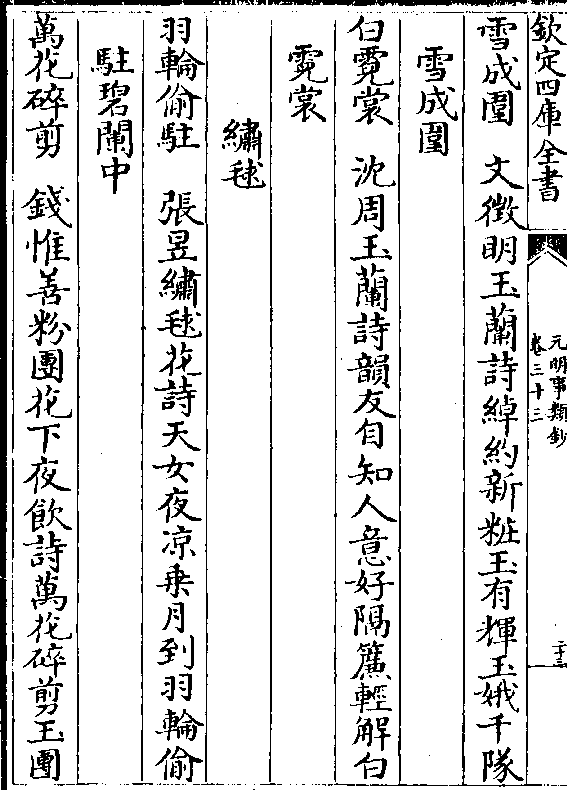 欽定四庫全書
元明事類鈔
卷三十三
二十三
雪成圍　文徴明玉蘭詩綽約新粧玉有輝玉娥千隊
雪成圍
白霓裳　沈周玉蘭詩韻友自知人意好隔簾輕解白
霓裳
繡毬
羽輪偷駐　張昱繡毬花詩天女夜凉乗月到羽輪偷
駐碧闌中
萬花碎剪　錢惟善粉團花下夜飲詩萬花碎剪玉團